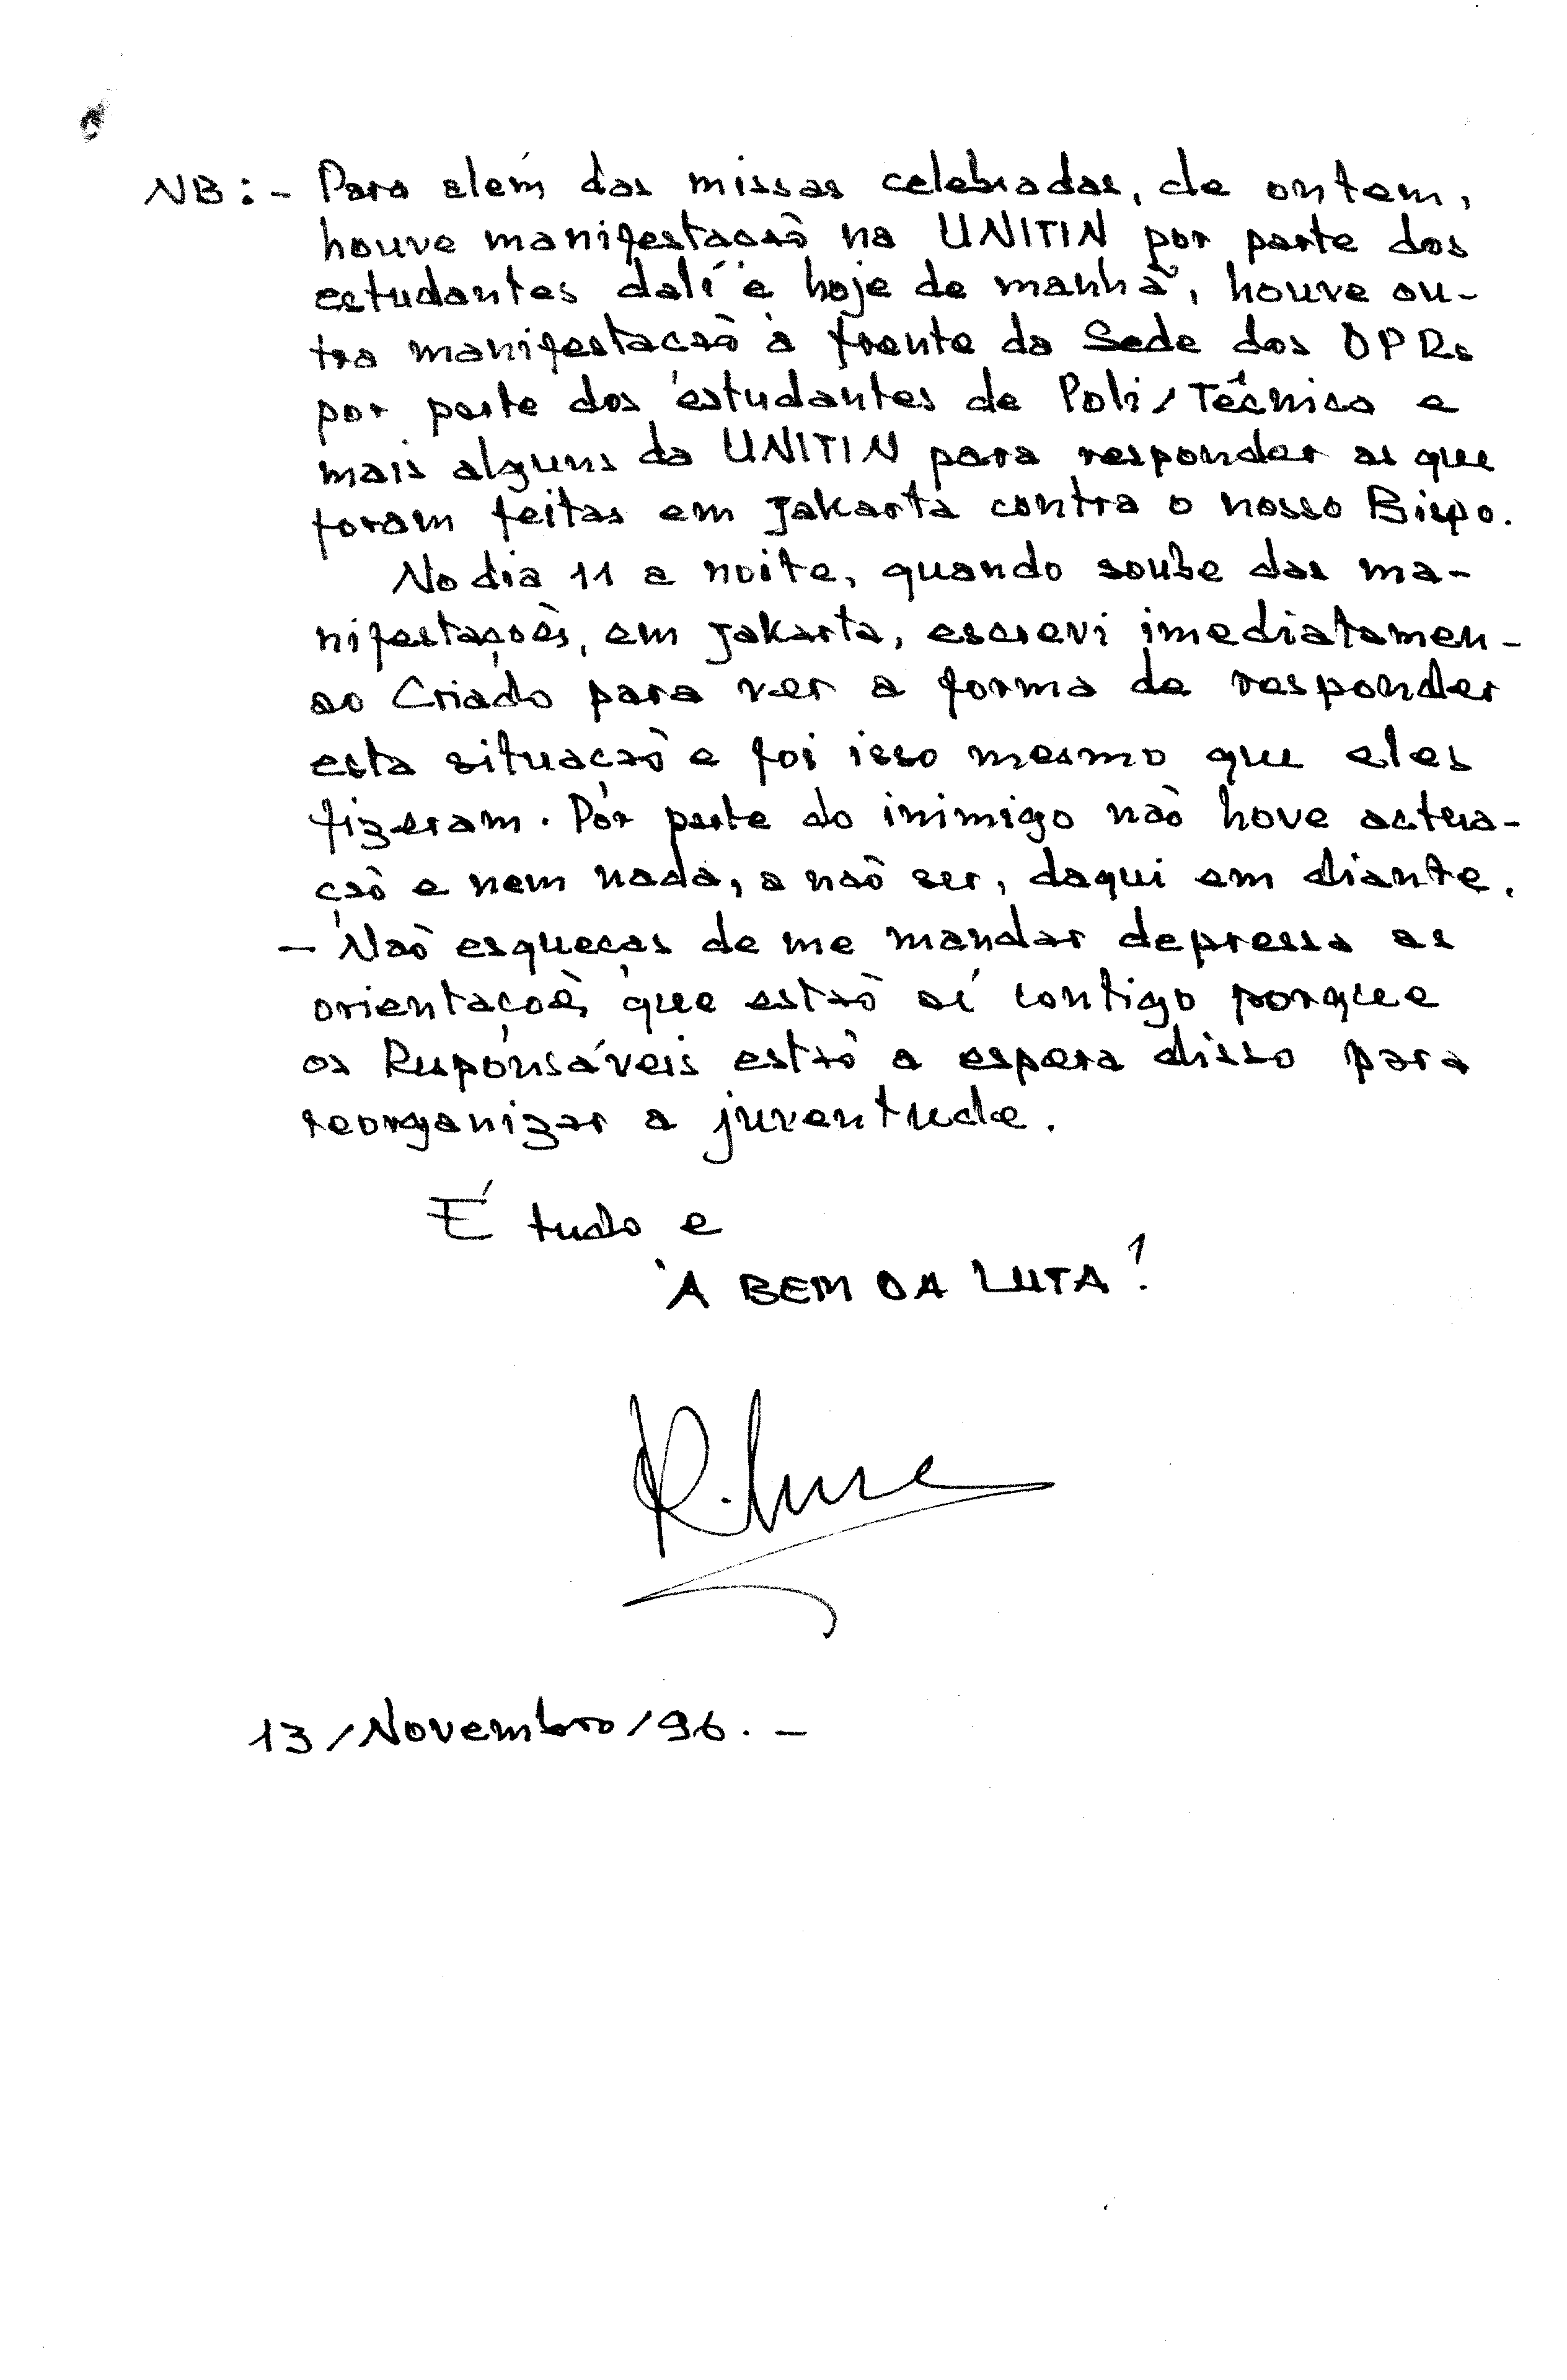 NB:- Para além das missas celebradas, de ontem,
houve manifestação na UNITIN por parte dos
estudantes dalí e hoje de manhã, houve ou-
tra manifestação à frente da Sede dos DPRs
por parte dos estudantes de Poli/Técnica e
mais alguns da UNITIN para responder as que
foram feitas em Jakarta contra o nosso Bispo.
No dia 11 a noite, quando soube das ma-
nifestações, em Jakarta, escrevi imediatamen-
ao Criado para ver a forma de responder
esta situação e foi isso mesmo que eles
fizeram. Por parte do inimigo não hove actua-
ção e nem nada, a não ser, daqui em diante.
- Não esqueças de me mandar depressa as
orientações que estão aí contigo porque
os Responsáveis estão a espera disso para
reorganizar a juventude.
É tudo e
À BEM DA LUTA!
13/Novembro/96.-